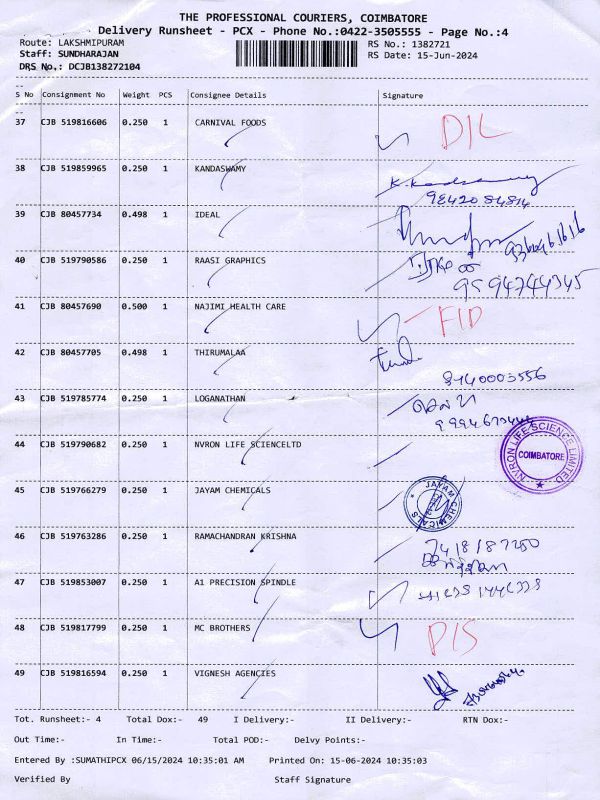 THE PROFESSIONAL COURIERS, COIMBATORE
Delivery Runsheet - PCX - Phone No.:0422-3505555 - Page No.:4
Route: LAKSHMIPURAM RS No.: 1382721
Staff: SUNDHARAJAN RS Date: 15-Jun-2024
DRS No.: DCJB138272104
S No Consignment No Weight PCS Consignee Details Signature
37 CJB 519816606 0.250 1 CARNIVAL FOODS DIL
38 CJB 519859965 0.250 1 KANDASWAMY
9842084814
39 CJB 80457734 0.498 1 IDEAL
40 CJB 519790586 0.250 1 RAASI GRAPHICS
9594744345
41 CJB 80457690 0.500 1 NAJIMI HEALTH CARE FID
42 CJB 80457705 0.498 1 THIRUMALAA
43 CJB 519785774 0.250 1 LOGANATHAN
44 CJB 519790682 0.250 1 NVRON LIFE SCIENCELTD NVRON LIFE SCIENCE LIMITED COIMBATORE
45 CJB 519766279 0.250 1 JAYAM CHEMICALS JAYAM CHEMICALS
46 CJB 519763286 0.250 1 RAMACHANDRAN KRISHNA
47 CJB 519853007 0.250 1 A1 PRECISION SPINDLE
48 CJB 519817799 0.250 1 MC BROTHERS DIS
49 CJB 519816594 0.250 1 VIGNESH AGENCIES
Tot. Runsheet:- 4 Total Dox:- 49 I Delivery:- II Delivery:- RTN Dox:-
Out Time:- In Time:- Total POD:- Delvy Points:-
Entered By :SUMATHIPCX 06/15/2024 10:35:01 AM Printed On: 15-06-2024 10:35:03
Verified By Staff Signature